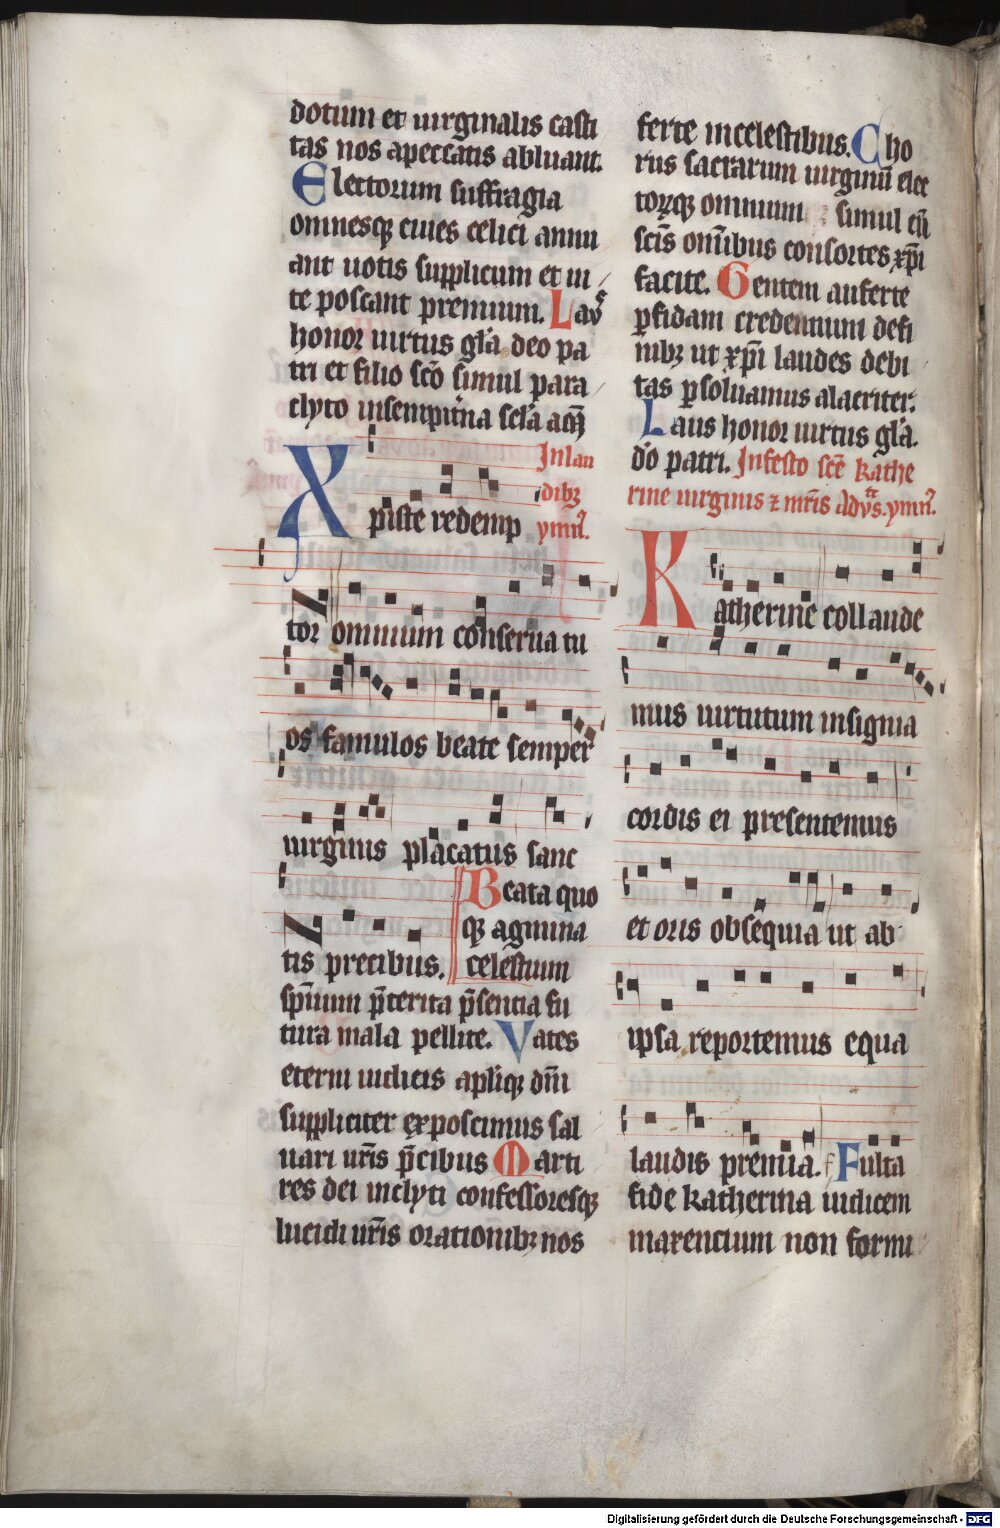 dotum et uirginalis casti
tas nos apeccatis abluant.
Electorum suffragia
omnesq; ciues celici annu
ant uotis supplicum et ui
te poscant premium. Laus
honor uirtus gla deo pa
tri et filio sco simul para
clyto insempitna scla am
In lau
dibz
Xpiste redemp ymn.
tor omnium conserua tu
os famulos beate semper
uirginis placatus sanc
Beata quo
q; agmina
tis precibus. celestium
spiuum pterita psentia fu
tura mala pellite. Vates
eterni iudicis aplique dni
suppliciter exposcimus sal
uari uris pcibus Marti
res dei inclyti confessoresq;
lucidi uris orationibz nos
ferte in celestibus. Cho
rus sacrarum uirginu elec
torq; omnium simul cu
scis omibus consortes xpi
facite. Gentem auferte
pfidam credentium defi
nibz ut xpi laudes debi
tas psoluamus alacriter.
Laus honor uirtus gla.
do patri. In festo sce kathe
rine uirginis z mris Ad vs. ymn.
Katherine collaude
mus uirtutum insignia
cordis ei presentemus
et oris obsequia ut ab
ipsa reportemus equa
laudis premia. Fulta
fide katherina iudicem
maxencium non formi
Digitalisierung gefördert durch die Deutsche Forschungsgemeinschaft - DFG